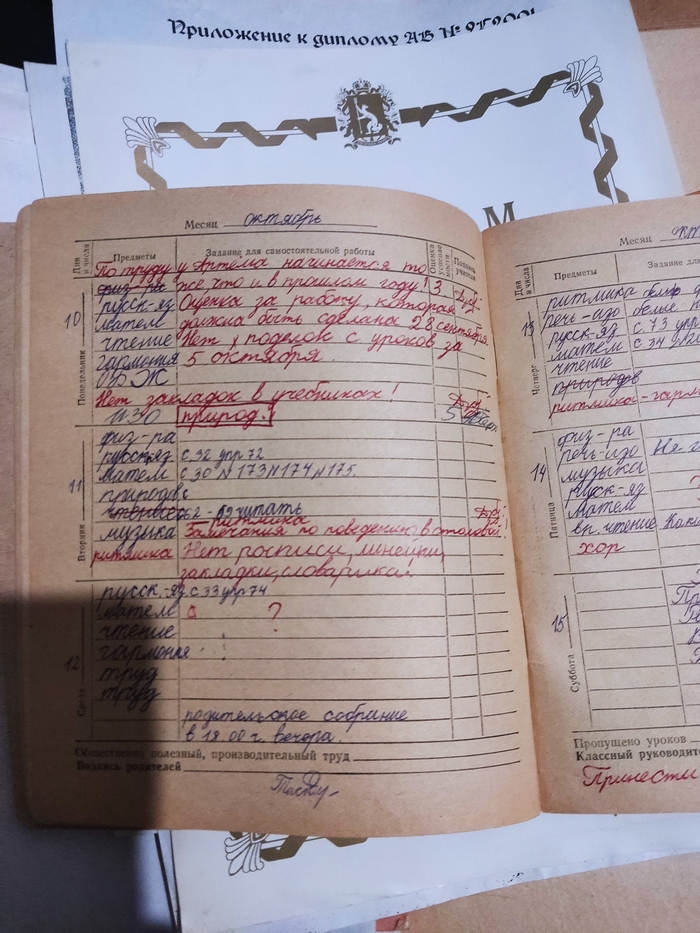 Приложение к диплому АВ №
М
Месяц октябрь
Дни и числа
Предметы
Задание для самостоятельной работы
Оценка успеваемости
Подпись учителя
По труду у Артема начинается то
физ-ра же, что и в прошлом году! 3
10
Понедельник
русск-яз Оценка за работу, которая
матем должна быть сделана 28 сентября.
чтение Нет поделок с уроков за
гармония 5 октября.
ОБЖ
Нет закладок в учебниках!
1130 природ. 5
11
Вторник
физ-ра
русск-яз с 32 упр 72
матем с 30 №173 №174, №175.
природов
чтение 62 - читать
ритмика
музыка Замечания по поведению в столовой!
ритмика Нет росписи, линейки,
закладки, словарика.
12
Среда
русск.-яз. с 33 упр 74
матем ?
чтение
гармония
труд
труд
родительское собрание
в 18 00 ч. вечера.
Общественно полезный, производительный труд
Подпись родителей
Месяц
Дни и числа
Предметы
Задание для
13
Четверг
ритмика
речь-изо
русск-яз с 73 упр
матем с 34
чтение
природов
ритмика-
14
Пятница
физ-ра
речь-изо
музыка
русск-яз
матем
вн. чтение
хор
15
Суббота
Пропущено уроков
Классный руководитель
Принести